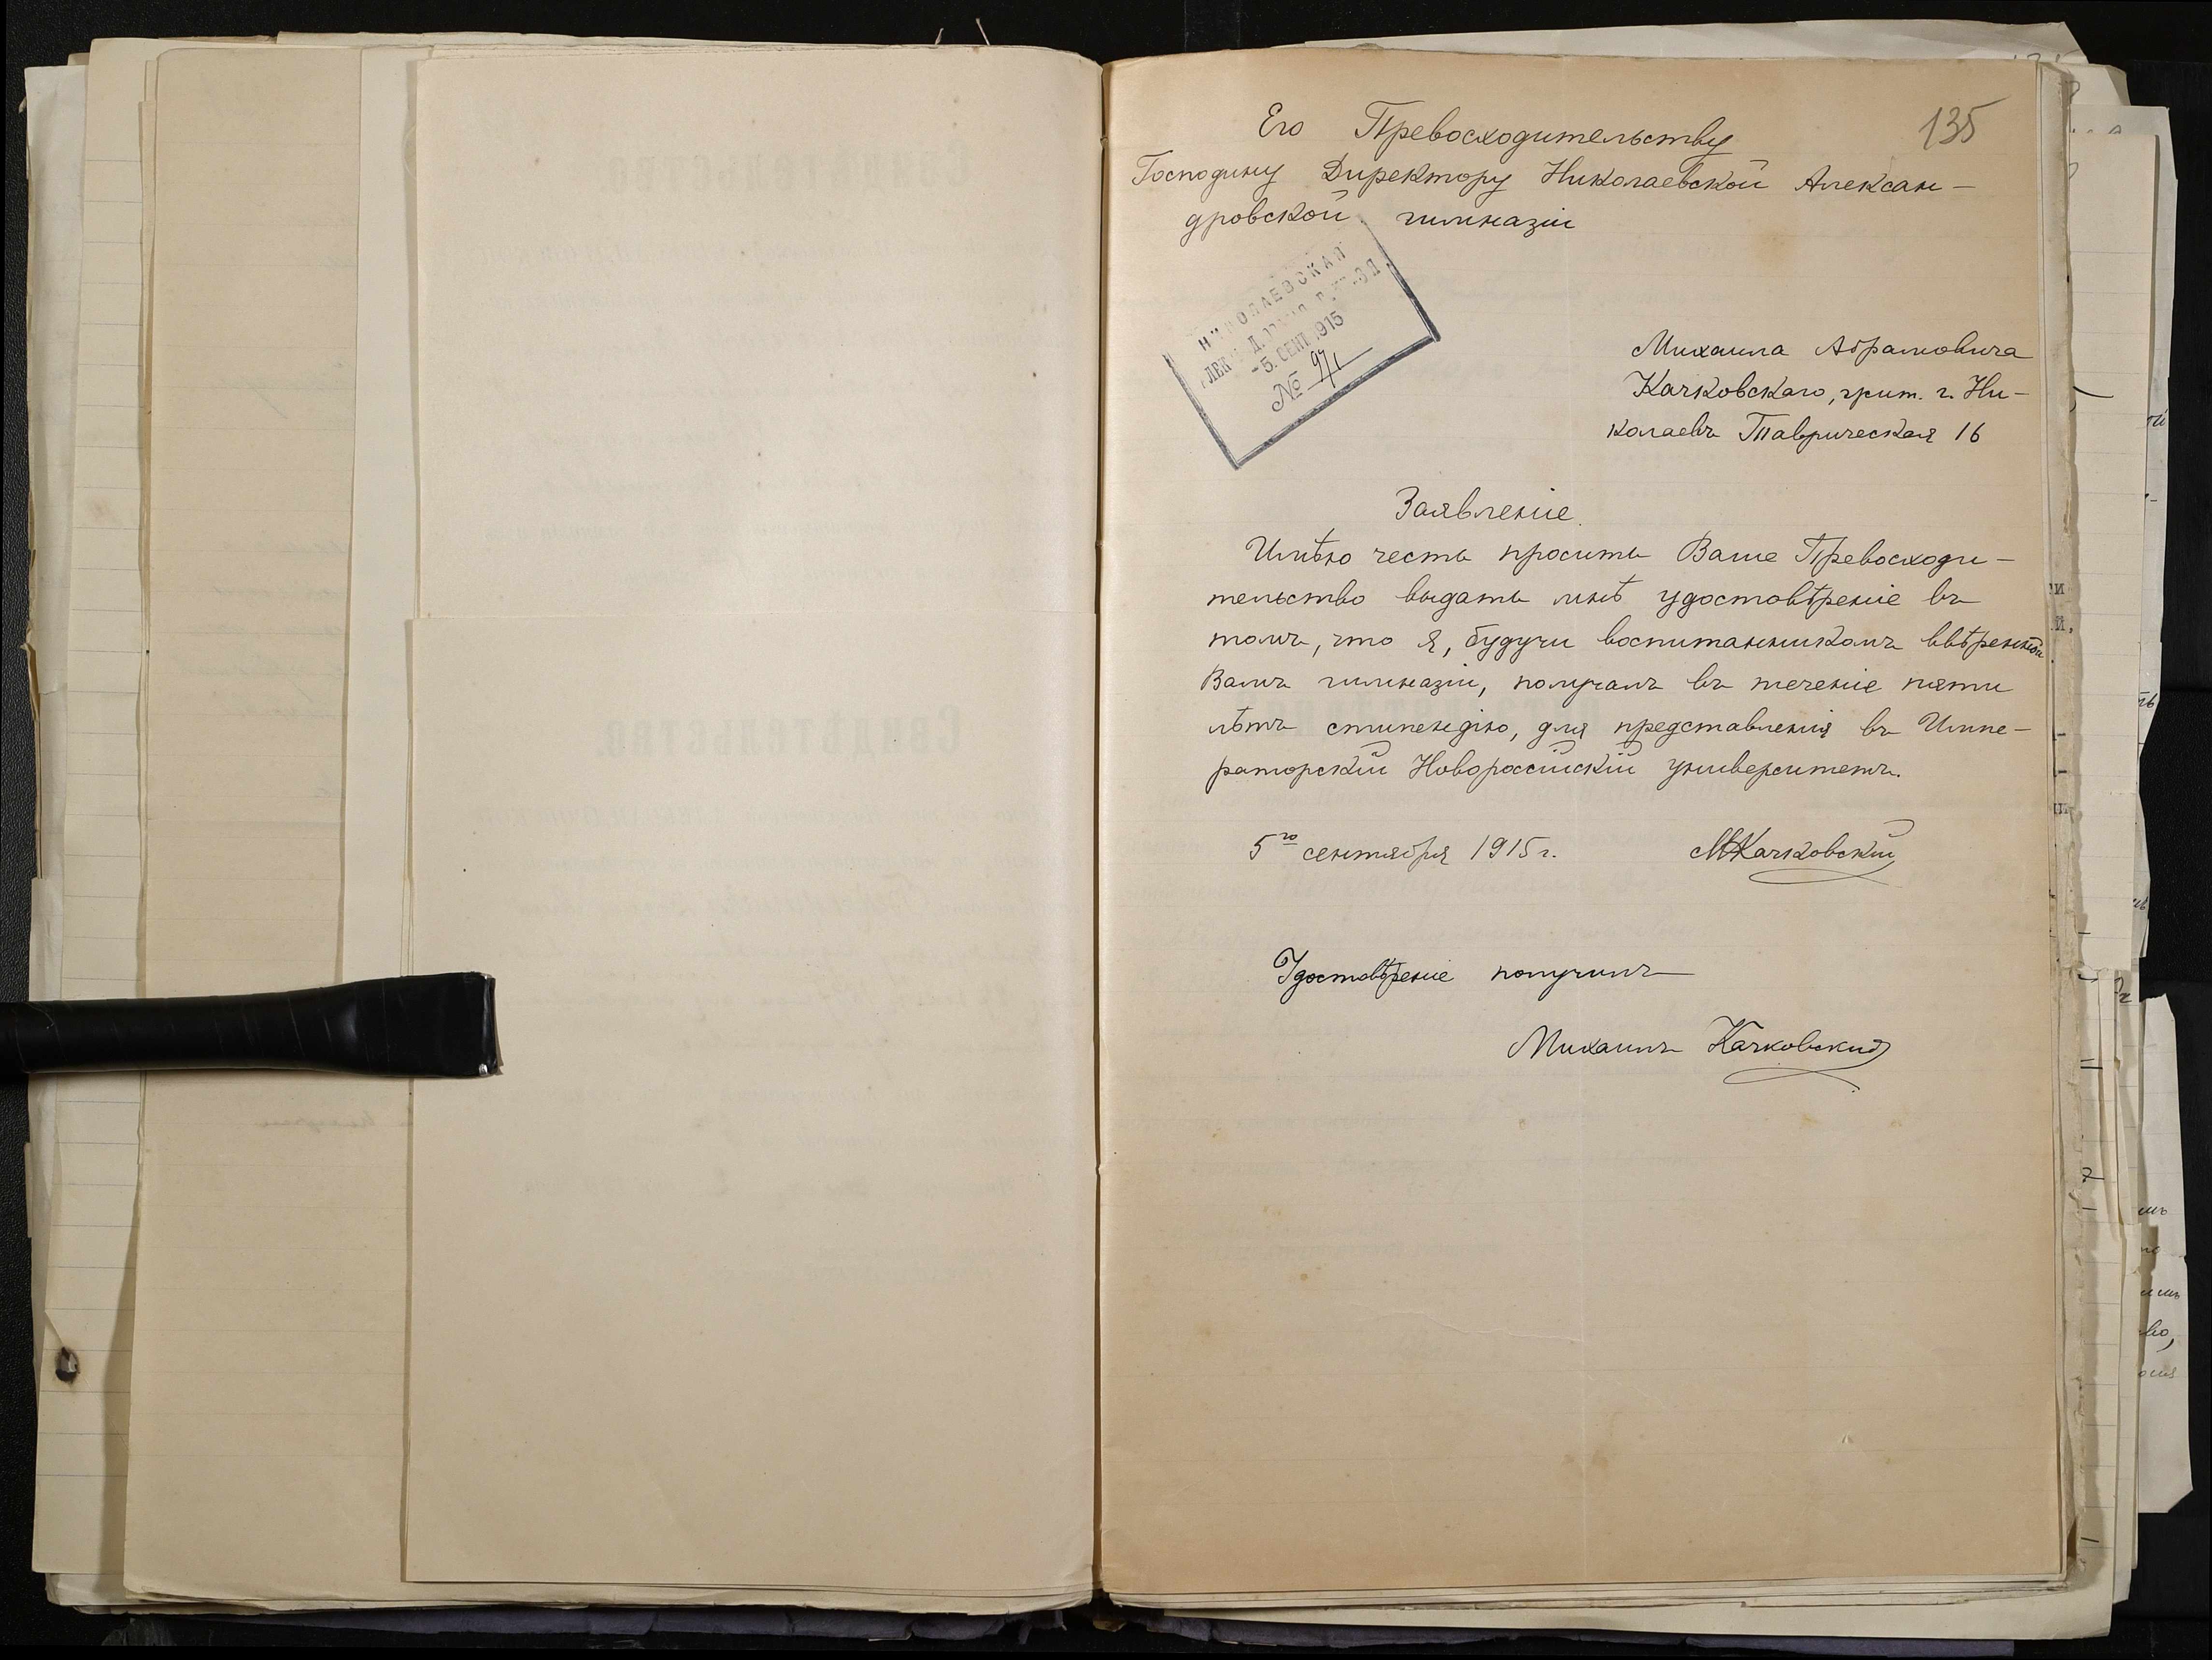 135
Его Превосходительству
Господину Директору Николаевской Алексан-
дровской гимназіи
НИКОЛАЕВСКАЯ
-5. СЕНТ. 1915
№ 971
Михаила Абрамовича
Качковскаго, жит. г. Ни-
колаевъ Таврическая 16
Заявленіе.
Имѣю честь просить Ваше Превосходи-
тельство выдать мнѣ удостовѣреніе въ
томъ, что я, будучи воспитанникомъ ввѣренной
Вамъ гимназіи, получалъ въ теченіе пяти
лѣтъ стипендію, для представленія въ Импе-
раторскій Новороссійскій университетъ.
5го сентября 1915 г. МКачковскій
Удостовѣреніе получилъ
Михаилъ Качковскій